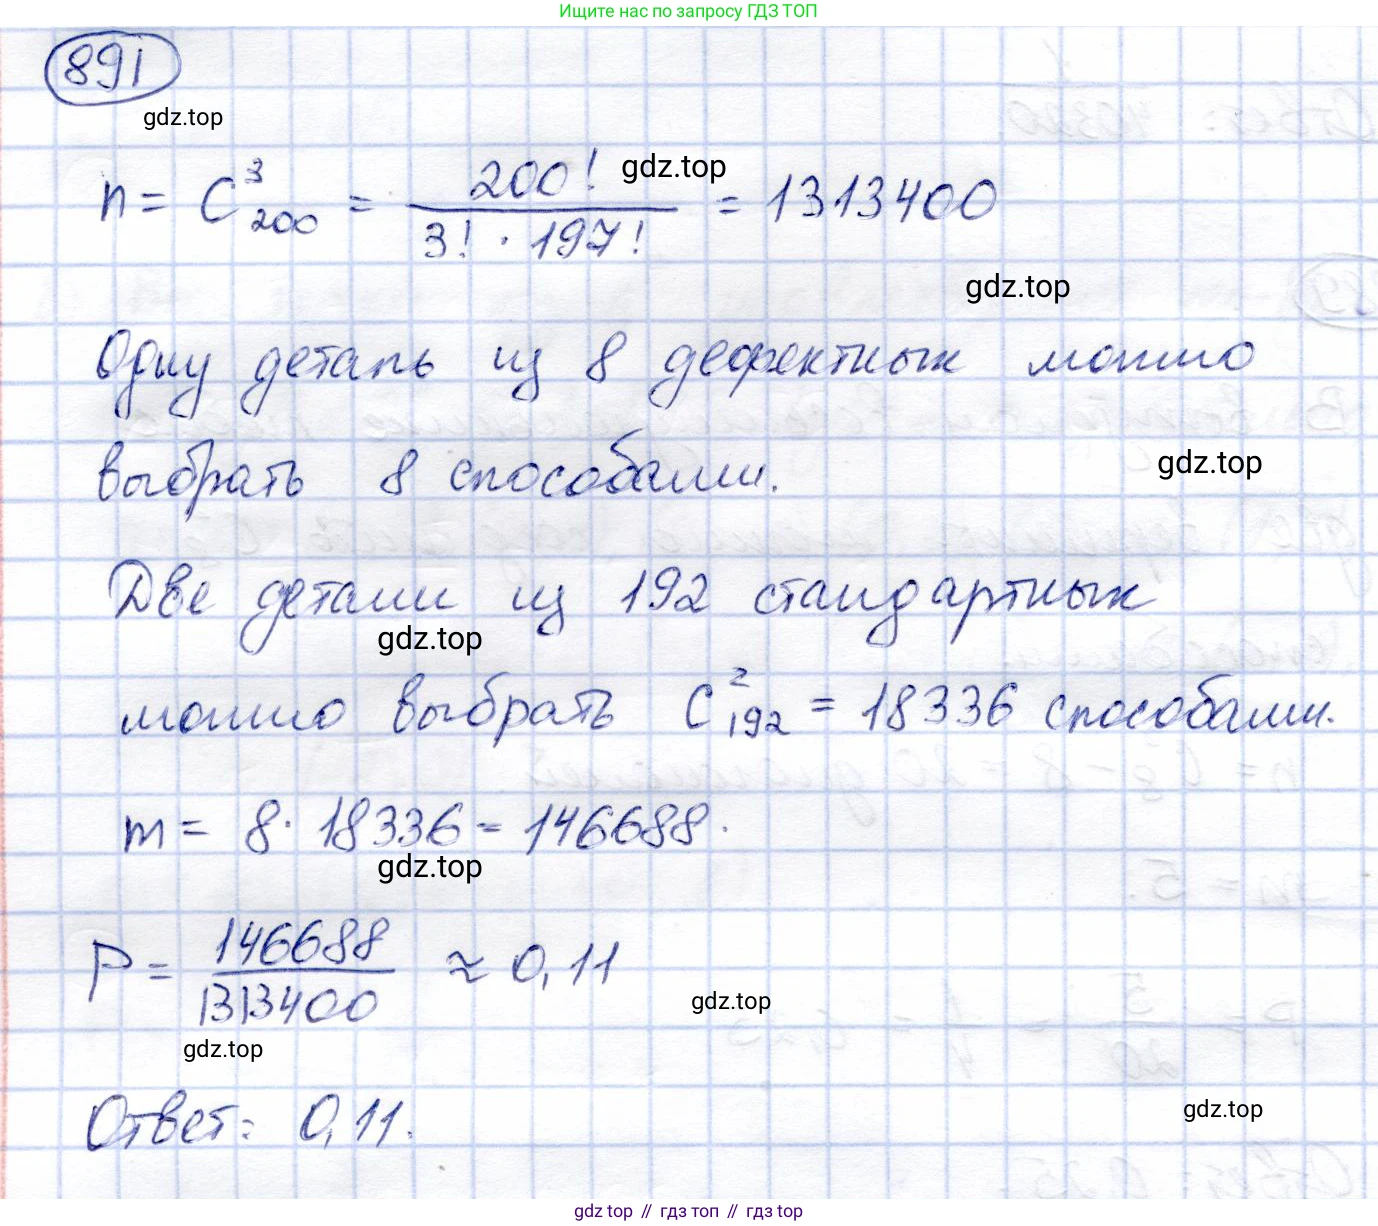 Ищите нас по запросу ГДЗ ТОП
891
gdz.top
n = C³₂₀₀ = 200! / 3! · 197! = 1313400
gdz.top
gdz.top
Одну деталь из 8 дефектных можно
выбрать 8 способами.
gdz.top
Две детали из 192 стандартных
gdz.top
можно выбрать C²₁₉₂ = 18336 способами.
m = 8 · 18336 = 146688.
gdz.top
P = 146688 / 1313400 ≈ 0,11
gdz.top
gdz.top
Ответ: 0,11.
gdz.top
gdz top // гдз топ // гдз top